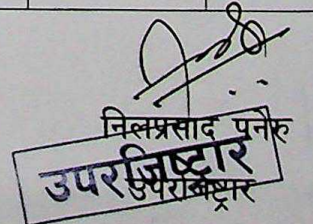 निलप्रसाद पनेरु
उपरजिष्ट्रार
उपरजिष्ट्रार